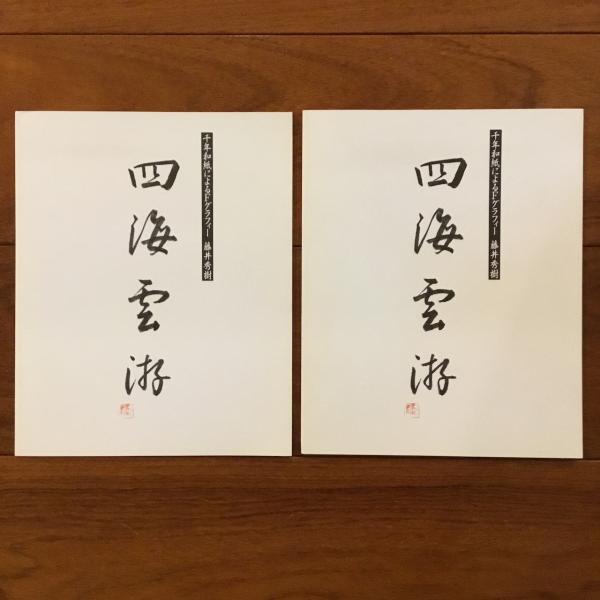 千年和紙によるFグラフィー 藤井秀樹
四海雲游
千年和紙によるFグラフィー 藤井秀樹
四海雲游